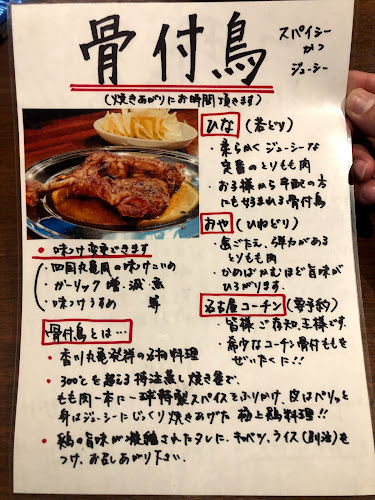 骨付鳥
スパイシー
かつ
ジューシー
(焼きあがりにお時間頂きます)
ひな (若どり)
・柔らかくジューシーな
定番のとりもも肉
・お子様から年配の方
にも好まれる骨付鳥
おや (ひねどり)
・歯ごたえ、弾力がある
とりもも肉
・かめばかむほど旨味が
ひろがります。
名古屋コーチン (要予約)
・皆様ご存知、王様です。
・希少なコーチン骨付ももを
ぜいたくに!!
・味つけ変更できます
・四国丸亀風の味付こいめ
・ガーリック 増・減・無
・味つけうすめ 等
骨付鳥とは…
・香川丸亀発祥の名物料理
・300℃を超える特注蒸し焼き釜で、
もも肉一本に一球特製スパイスをふりかけ、皮はパリッと
身はジューシーにじっくり焼きあげた 極上鶏料理!!
・鶏の旨味が凝縮されたタレに、キャベツ、ライス(別途)を
つけ、お召しあがり下さい。